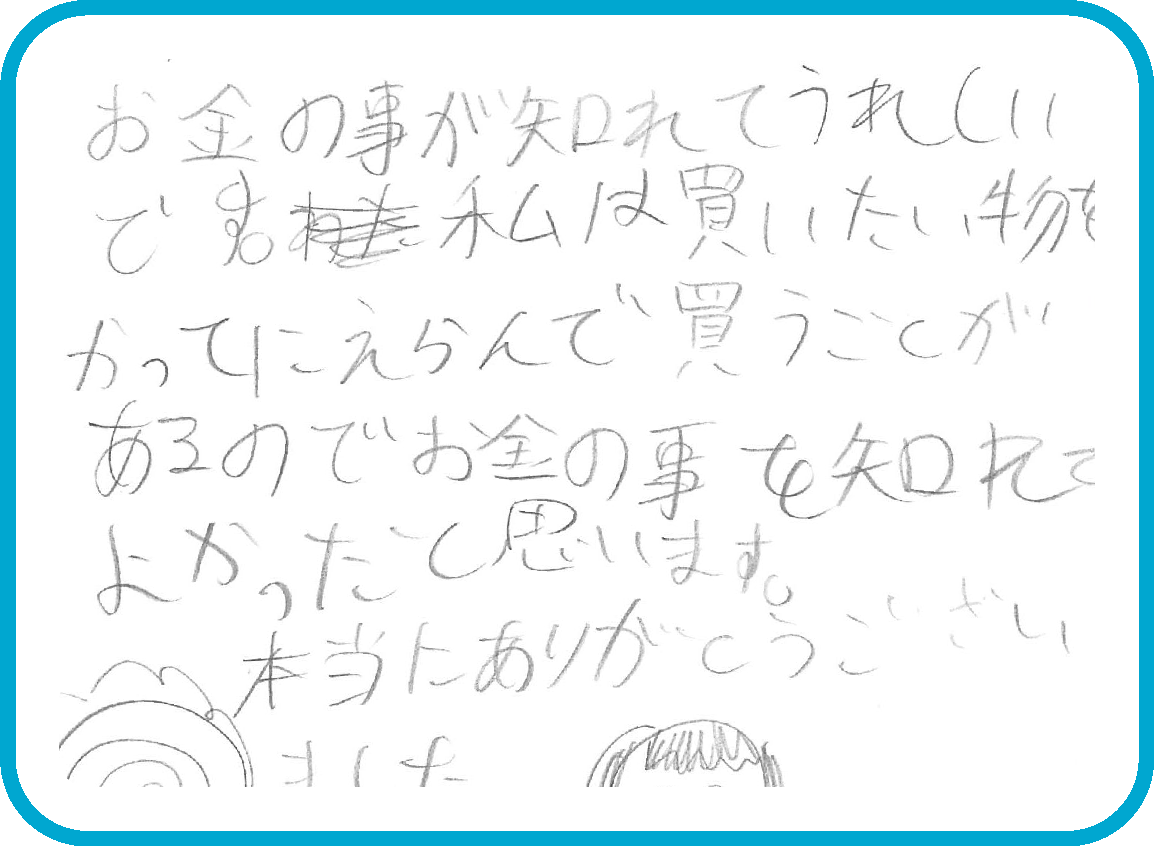 お金の事が知れてうれしい
です。私は買いたい物を
かってにえらんで買うことが
あるのでお金の事を知れて
よかったと思います。
本当にありがとうござい
ました